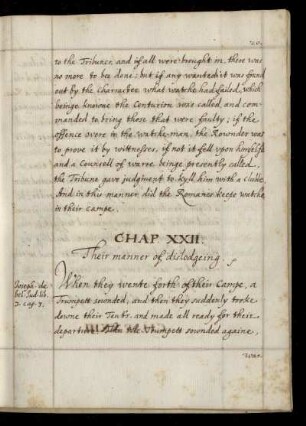 to the Tribunes and if all were brought in, there was
no more to bee done; but if any wanted it was found
out by the charracter what watche had failed, which
beinge knowne the Centurion was called and com-
manded to bring those that were faulty; if the
offence were in the watche-man, the Rownder was
to prove it by wittnesses, if not it fell upon himselfe
and a Councell of warre beinge presently called,
the Tribune gave judgment to kyll him with a clubb.
And in this manner did the Romanes keepe watche
in their campe.
CHAP XXII.
Their manner of dislodgeing.
Joseph: de
bell: Jud: lib
3. cap. 3.
When they wente forth of their Campe, a
Trumpett sownded, and then they suddenly tooke
downe their Tents, and made all ready for their
departure. Then the Trumpett sownded againe,